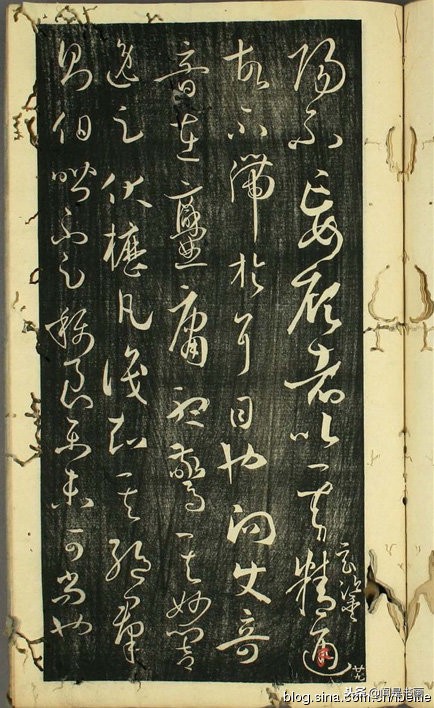 陽不妄顧者以其玄鑒精通
故不滯於耳目也向使奇
音在爨庸聽驚其妙響
逸足伏櫪凡識知其絕羣
則伯喈不足稱良樂未可尚也
blog.sina.com.cn/beitie